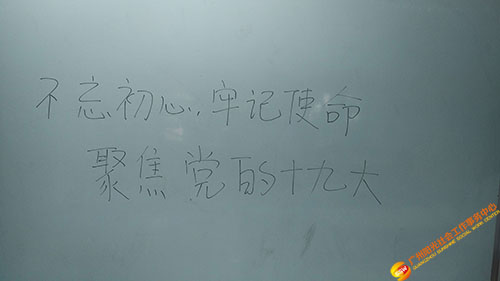 不忘初心,牢记使命
聚焦党的十九大
广州阳光社会工作事务中心
GUANGZHOU SUNSHINE SOCIAL WORK CENTER